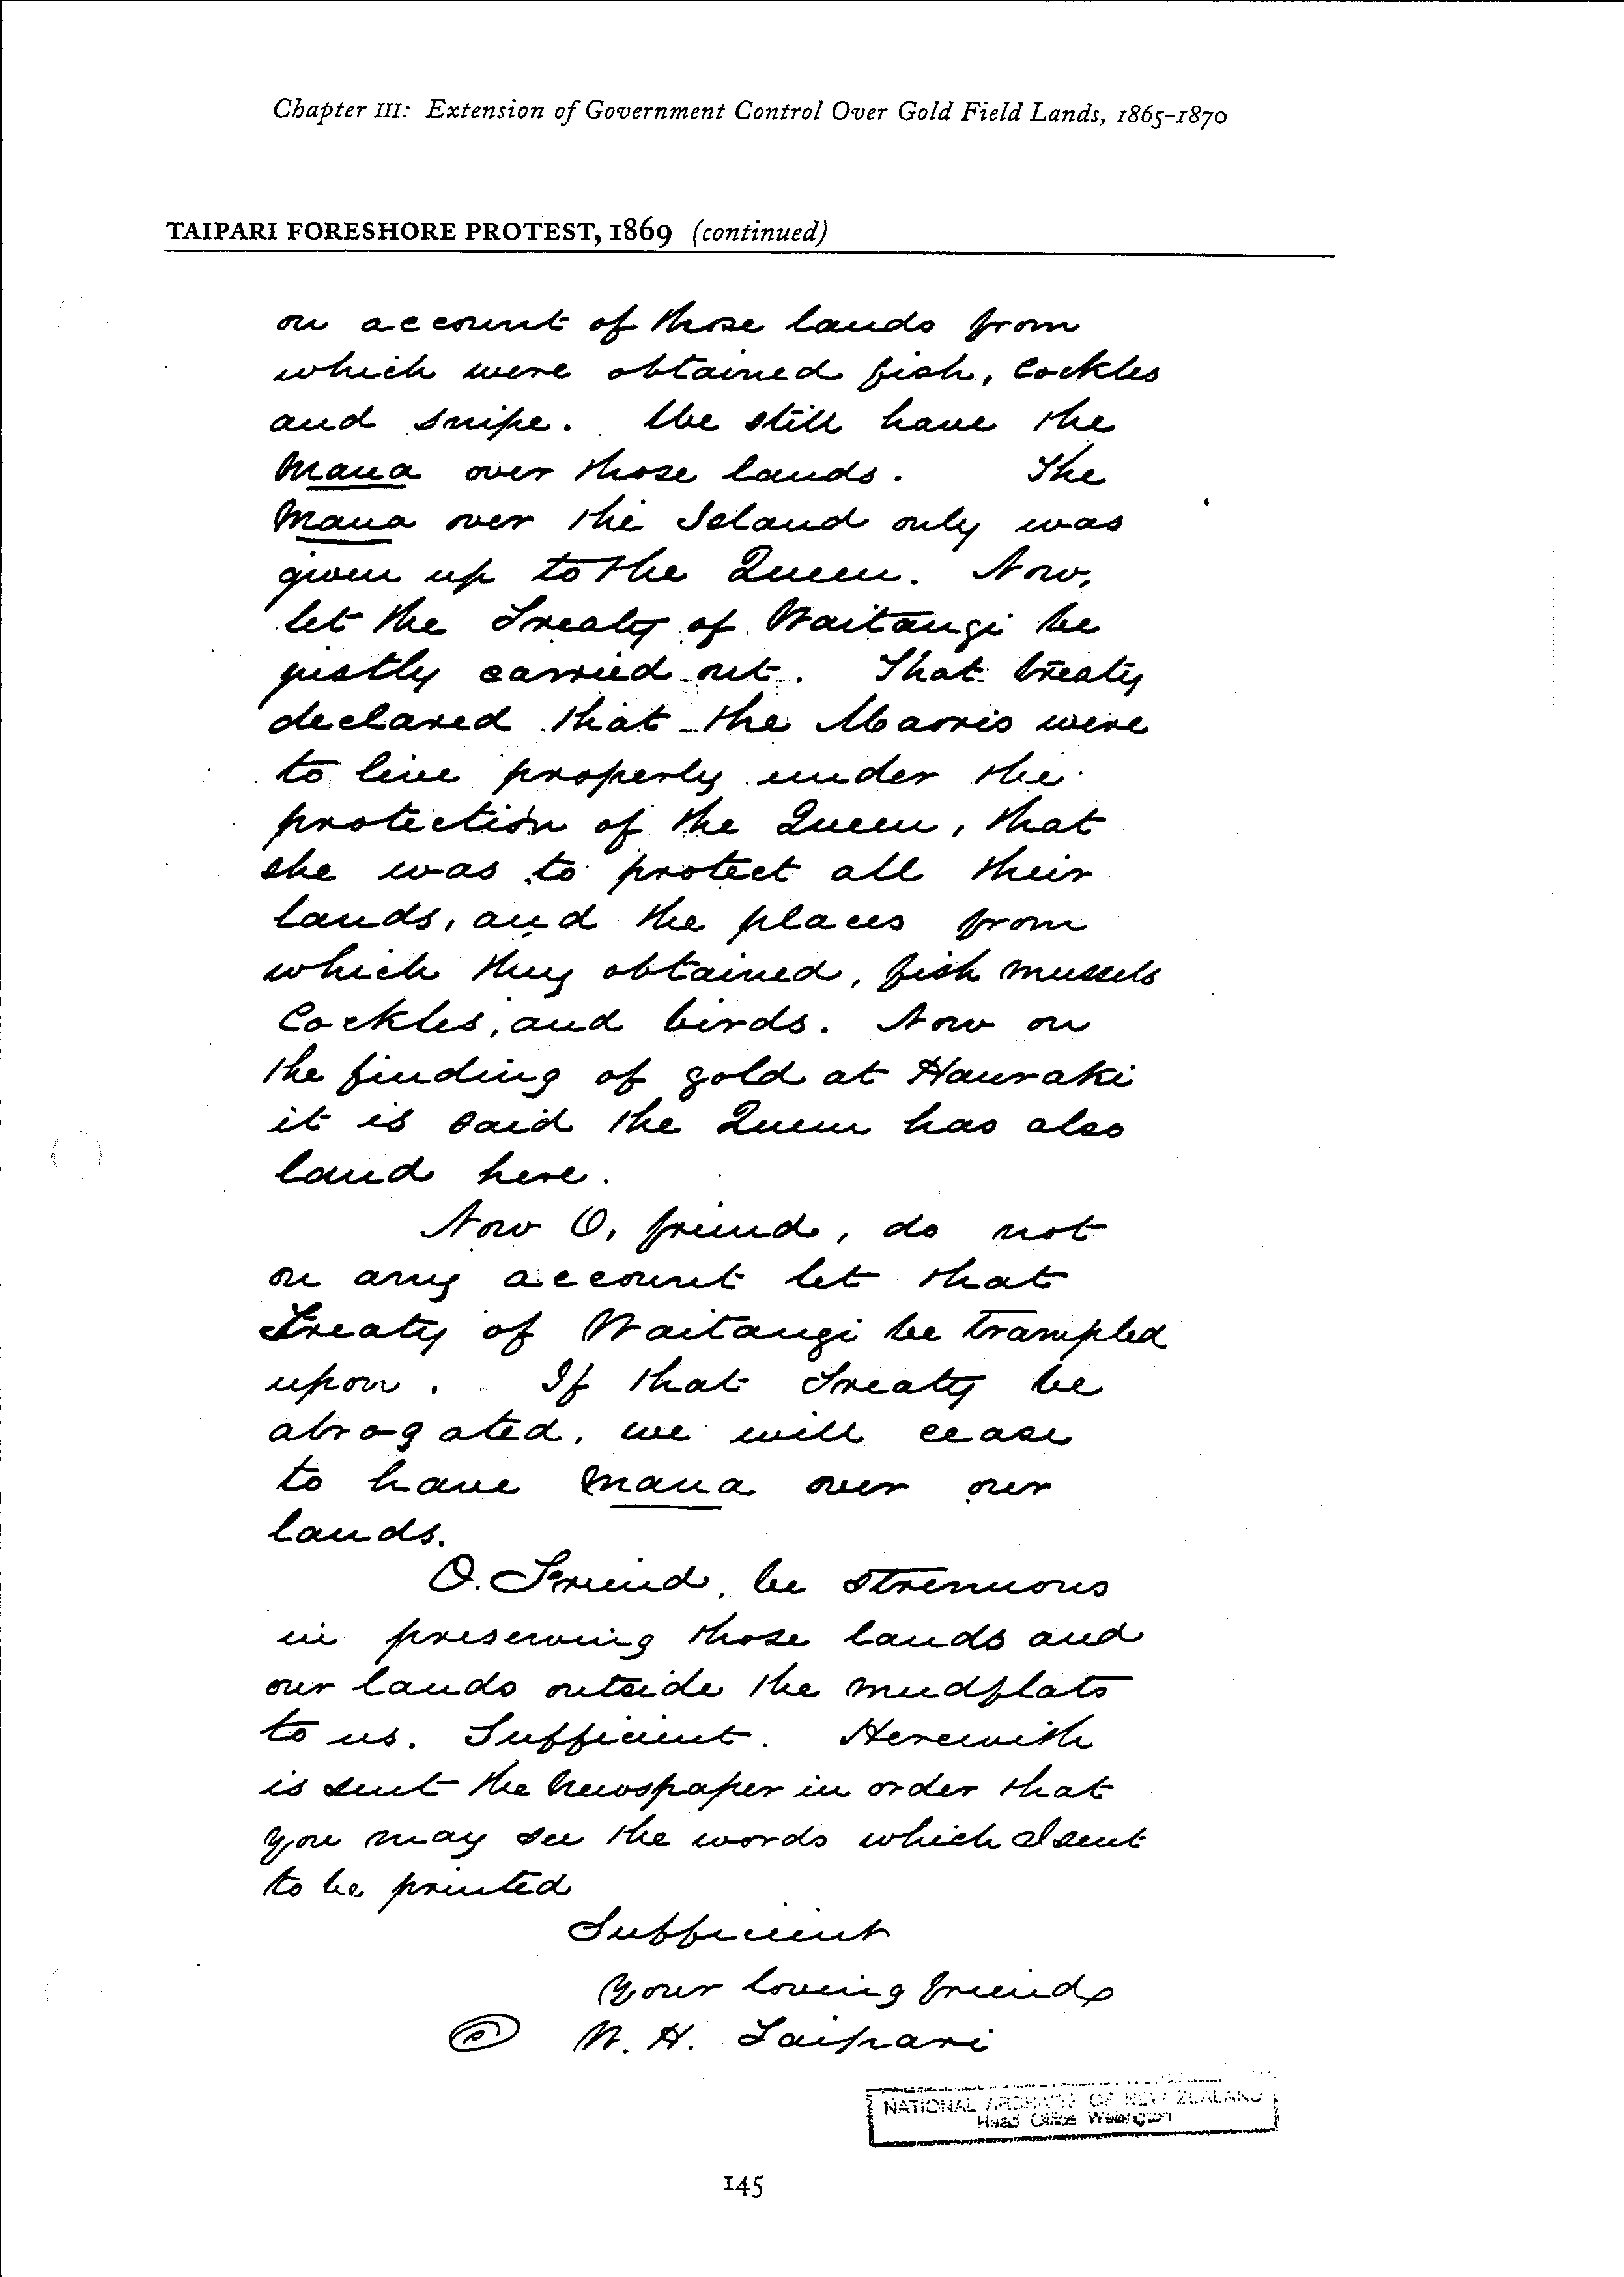 Chapter III: Extension of Government Control Over Gold Field Lands, 1865-1870
TAIPARI FORESHORE PROTEST, 1869 (continued)
on account of those lands from
which were obtained fish, Cockles
and snipe. We still have the
Mana over those lands. The
Mana over the Island only was
given up to the Queen. Now,
let the Treaty of Waitangi be
justly carried out. That treaty
declared that the Maoris were
to live properly under the
protection of the Queen, that
she was to protect all their
lands, and the places from
which they obtained, fish mussels
Cockles, and birds. Now on
the finding of gold at Hauraki
it is said the Queen has also
land here.
Now O, friend, do not
on any account let that
Treaty of Waitangi be trampled
upon. If that Treaty be
abrogated, we will cease
to have mana over our
lands.
O. Friend, be strenuous
in preserving those lands and
our lands outside the mudflats
to us. Sufficient. Herewith
is sent the Newspaper in order that
you may see the words which I sent
to be printed
Sufficient
Your loving friend
W. H. Taipari
NATIONAL ARCHIVES OF NEW ZEALAND
Head Office Wellington
145